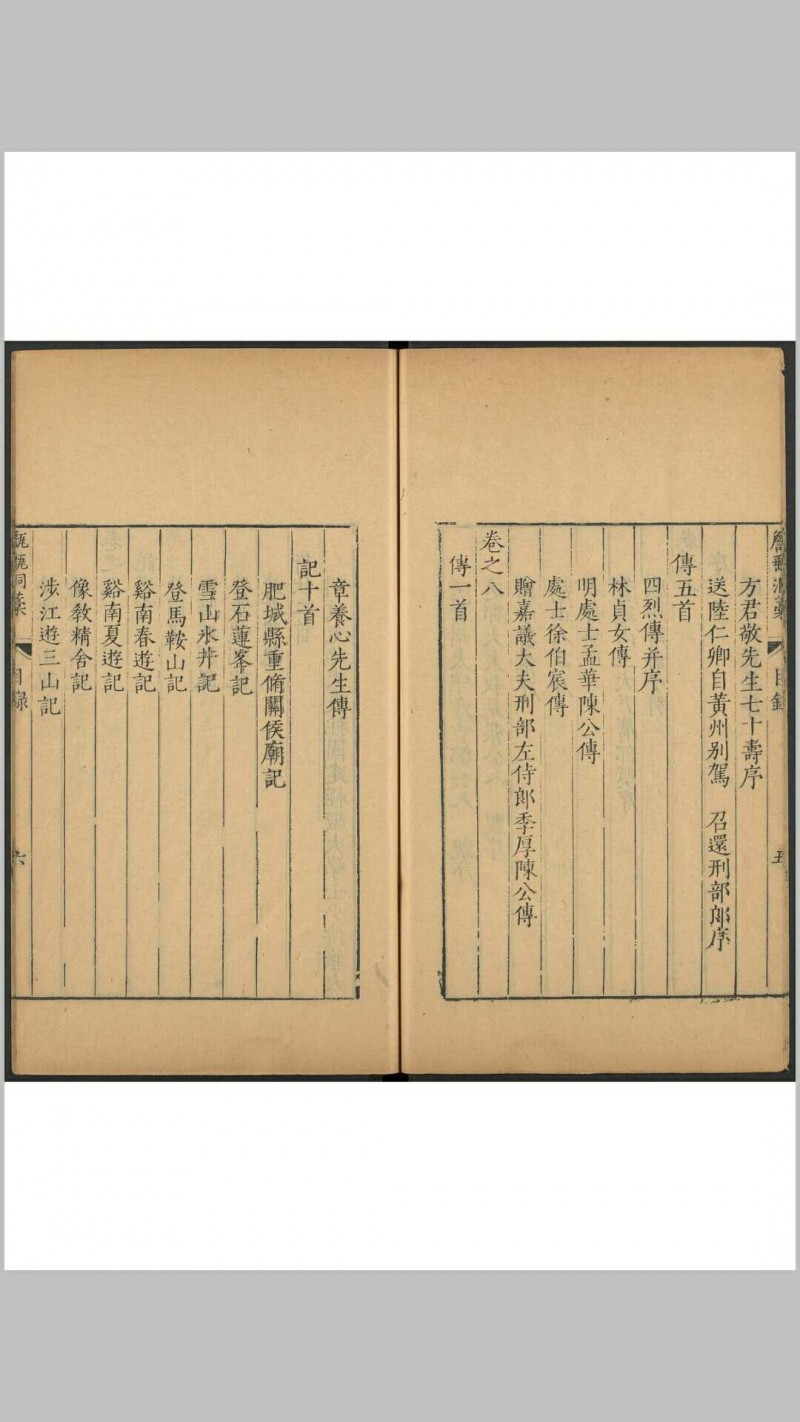 目錄
五
方君敬先生七十壽序
送陸仁卿自黃州別駕 召還刑部郎序
傳五首
四烈傳并序
林貞女傳
明處士孟華陳公傳
處士徐伯宸傳
贈嘉議大夫刑部左侍郎季厚陳公傳
卷之八
傳一首
章養心先生傳
記十首
肥城縣重脩關侯廟記
登石蓮峯記
雪山氷井記
登馬鞍山記
谿南春遊記
谿南夏遊記
像教精舍記
涉江遊三山記
目錄
六